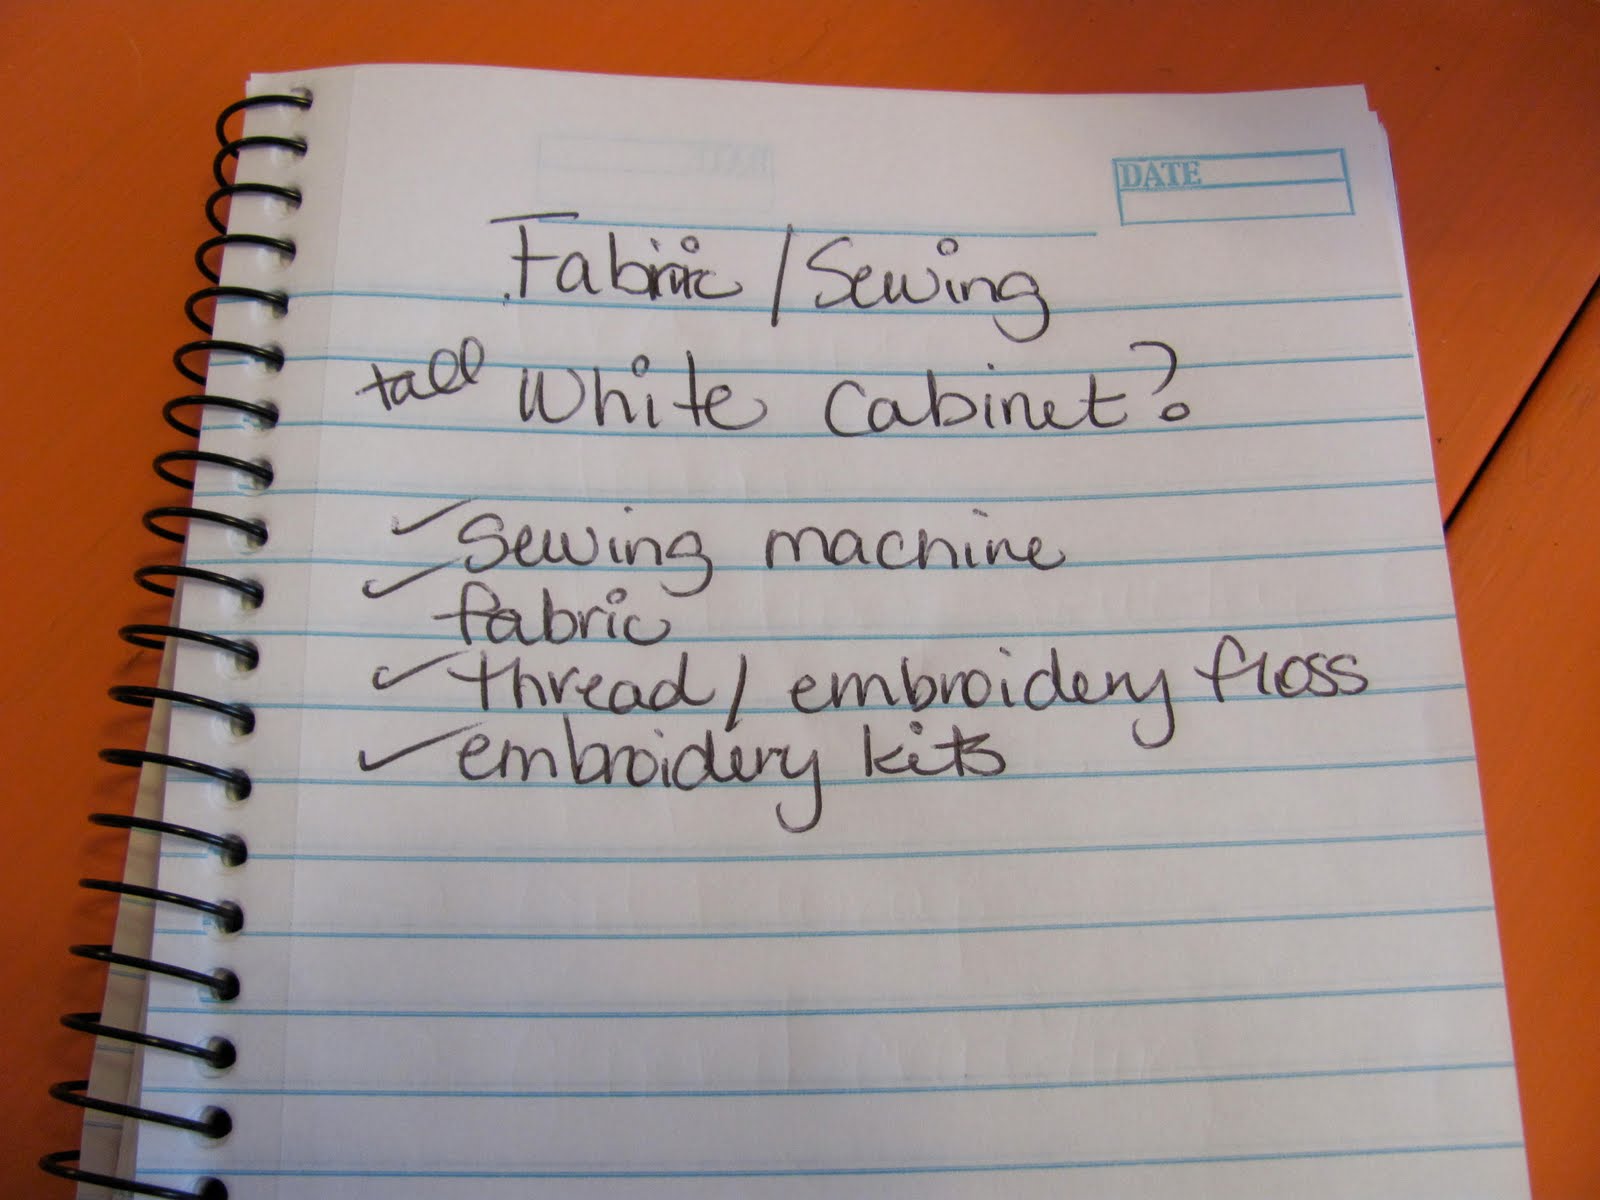 DATE
Fabric / Sewing
tall White Cabinet?
✓ Sewing machine
✓ fabric
✓ thread / embroidery floss
✓ embroidery kits